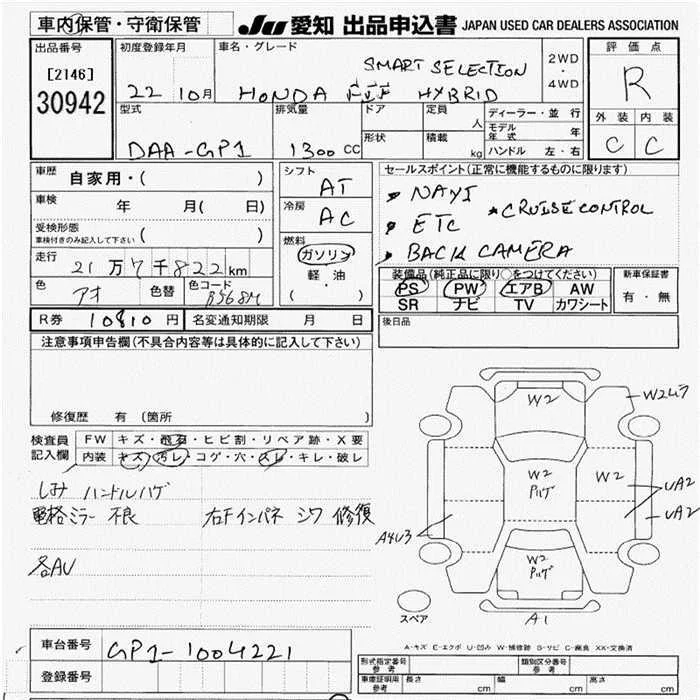 車内保管・守衛保管
JU 愛知 出品申込書 JAPAN USED CAR DEALERS ASSOCIATION
出品番号
[2146]
30942
初度登録年月
22 10月
車名・グレード
SMART SELECTION
HONDA FIT HYBRID
2WD
・
4WD
評価点
R
外装 内装
C C
型式
DAA-GP1
排気量
1300 CC
ドア
形状
定員
人
積載
kg
ディーラー・並行
モデル年式 年
ハンドル 左・右
車歴 自家用・( )
車検 年 月( 日)
受検形態
車検付きのみ記入して下さい ( )
走行 21万7千822km
色 アオ 色替 色コード B568M
シフト
AT
冷房
AC
燃料
ガソリン
軽・油
( )
セールスポイント(正常に機能するものに限ります)
NAVI
ETC
★CRUISE CONTROL
BACK CAMERA
装備品(純正品に限り○をつけてください)
PS PW エアB AW
SR ナビ TV カワシート
新車保証書
有・無
R券 10810円 名変通知期限 月 日
後日品
注意事項申告欄(不具合内容等は具体的に記入して下さい)
修復歴 有(箇所 )
検査員記入欄
FW キズ・飛石・ヒビ割・リペア跡・X要
内装 キズ・汚レ・コゲ・穴・スレ・キレ・破レ
しみ ハンドルハゲ
電格ミラー不良 右Fインパネ シワ 修復
各AU
W2
W2ムラ
W2
Pハゲ
W2
UA2
UA2
A4U3
W2
Pハゲ
スペア
A1
A-キズ E-エクボ U-凹み W-補修跡 S-サビ C-腐食 XX-交換済
車台番号 GP1-1004221
登録番号
形式指定番号 参考
類別区分番号 参考
車庫証明用 参考
長さ cm 幅 cm 高さ cm